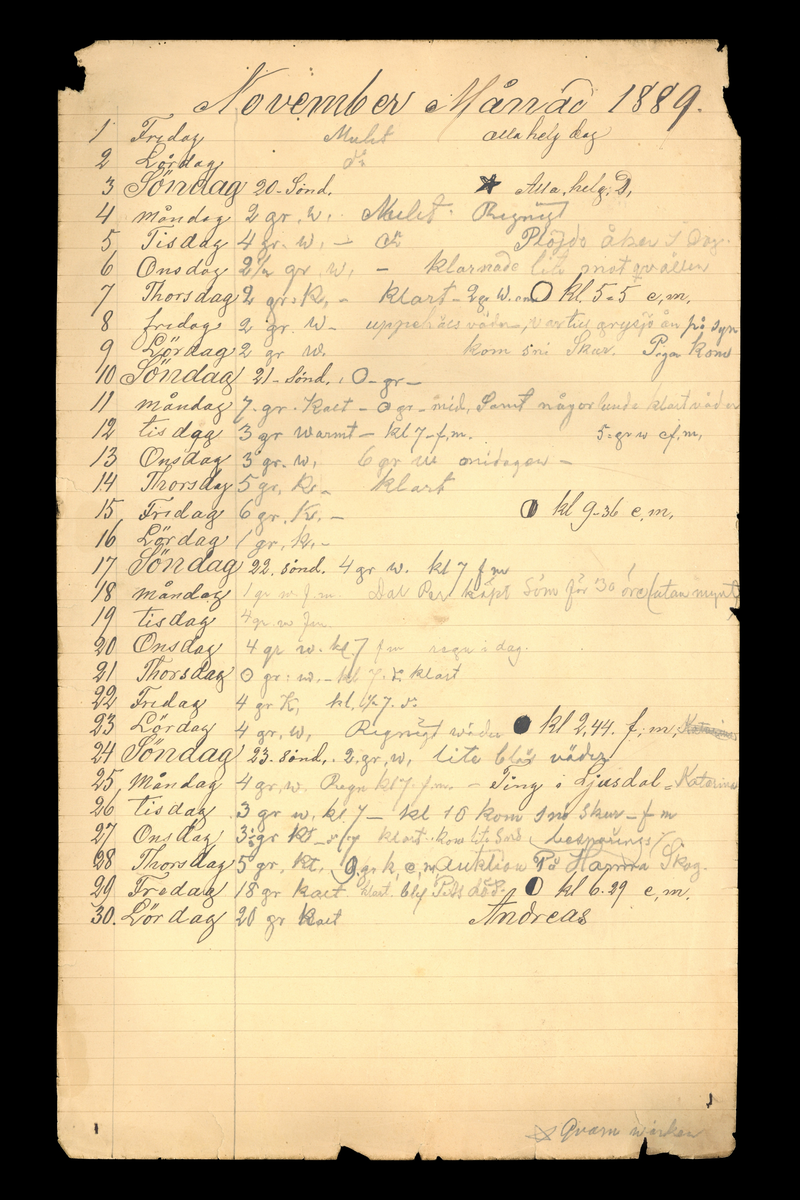 November Månad 1889.
1 Fredag Mulet Alla helg dag
2 Lördag do
3 Söndag 20-Sönd. Alla, helg, D,
4 Måndag 2 gr. w. Mulet. Regnigt
5 Tisdag 4 gr. w, — do Plöjde åker
6 Onsdag 2 1/2 gr w, — klarnade lite mot qvällen
7 Thorsdag 2 gr. K, - klart - 2 gr W. em kl. 5-5 e, m,
8 fredag 2 gr. w - uppehålls väder, på syn
9 Lördag 2 gr w. kom snö Skur. kom
10 Söndag 21-Sönd. 0-gr-
11 måndag 7 gr. Kalt - 0 gr - mid, Samt någorlunda klart väder
12 tisdag 3 gr warmt - kl 7-f,m. 5-gr w ef,m,
13 Onsdag 3 gr. w, 6 gr w midagen -
14 Thorsdag 5 gr, K, - klart
15 Fredag 6 gr. K, - kl 9-36 e, m,
16 Lördag 1 gr, k, -
17 Söndag 22. sönd. 4 gr w. kl 7 f m
18 måndag 1 gr w f. m. Per köpt Söm för 30 öre (utan mynt
19 tisdag 4 gr w fm
20 Onsdag 4 gr w. kl. 7 f m regn i dag.
21 Thorsdag 0 gr: w, - kl 7. klart
22 Fredag 4 gr K, kl. 7.
23 Lördag 4 gr, w, Regnigt wäder kl 2,44. f, m, Katarina
24 Söndag 23. sönd. 2. gr, w, lite blås väder
25, Måndag 4 gr, w. Regn kl 7. f. m. - Ting i Ljusdal - Katarina
26 tisdag 3 gr w, kl 7 - kl 10 kom snö Skur - f m
27 Onsdag 3 gr kl klart kom lite Snö besparings
28 Thorsdag 5 gr, kl, 9 gr k, e, m, Auktion På Hamra Skog.
29 Fredag 18 gr kalt klart. blef död. kl 6.29 e, m.
30. Lördag 20 gr kalt Andreas
Qvarn